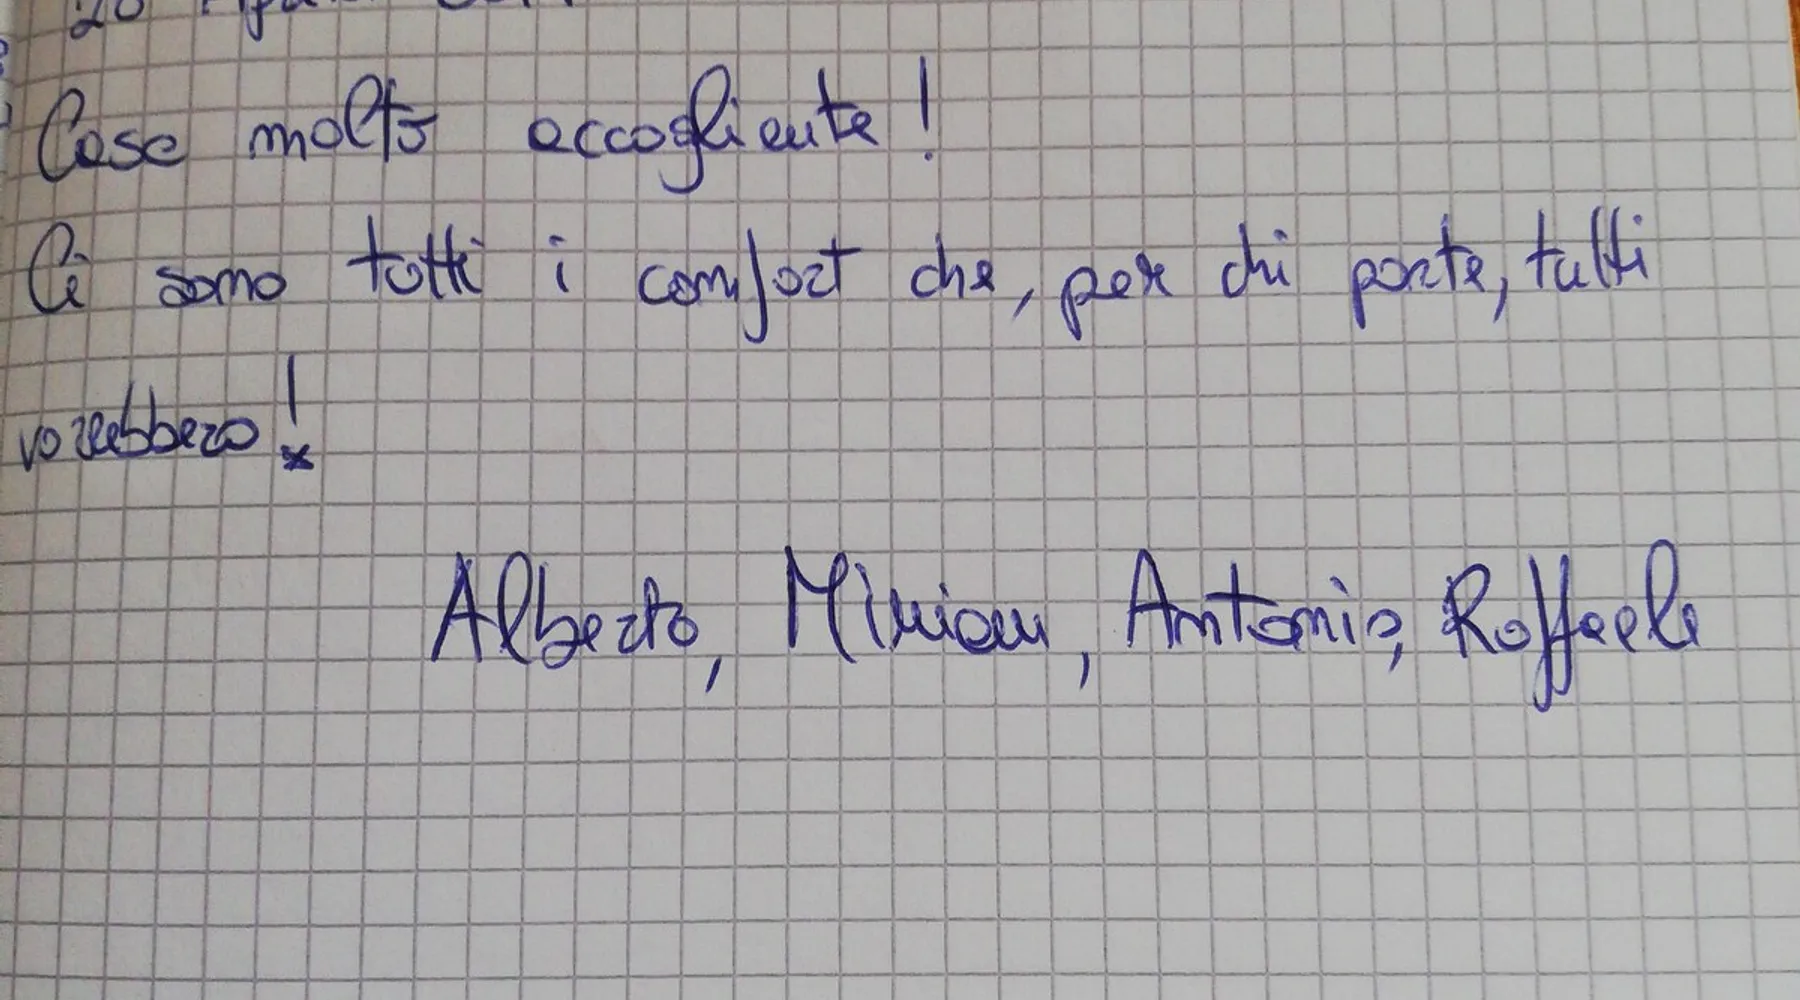 20
Casa molto accogliente!
Ci sono tutti i comfort che, per chi parte, tutti
vorrebbero!
Alberto, Miriam, Antonio, Raffaele